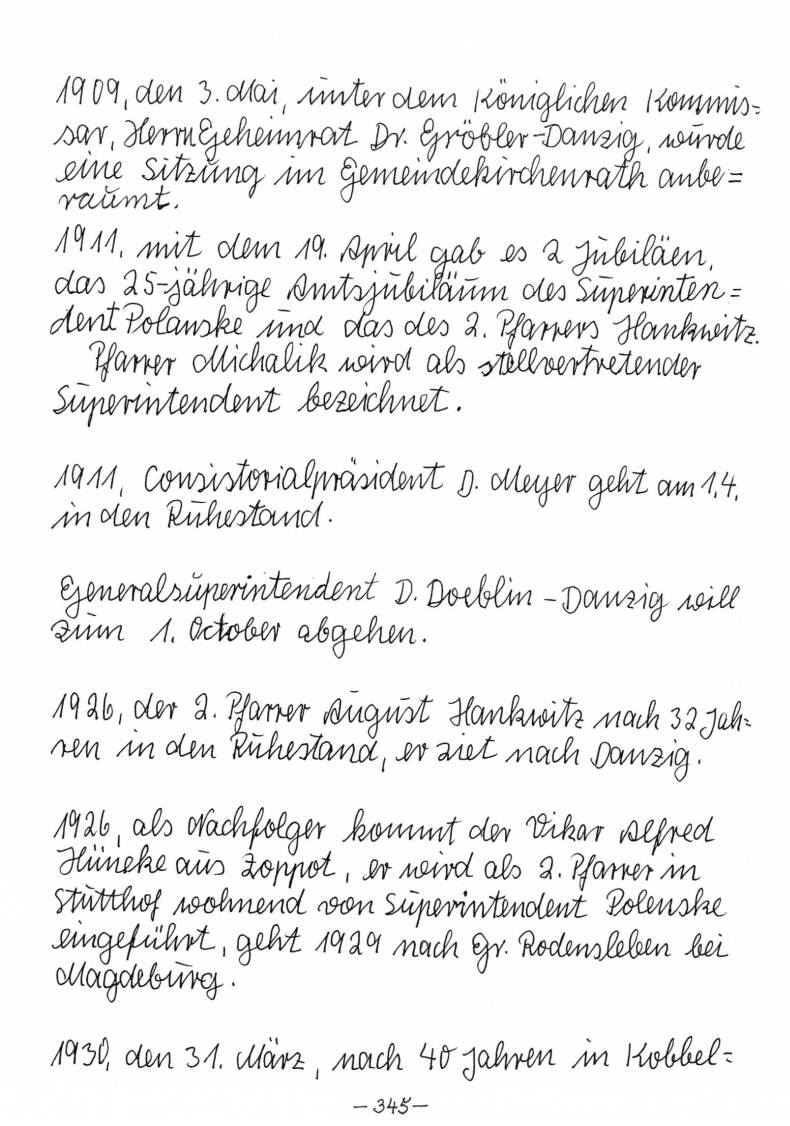 1909, den 3. Mai, unter dem Königlichen Kommis=
sar, Herrn Geheimrat Dr. Gröbler-Danzig, wurde
eine Sitzung im Gemeindekirchenrath anbe=
raumt.
1911, mit dem 19. April gab es 2 Jubiläen,
das 25-jährige Amtsjubiläum des Superinten=
dent Polanske und das des 2. Pfarrers Hankwitz.
Pfarrer Michalik wird als stellvertretender
Superintendent bezeichnet.
1911, Consistorialpräsident D. Meyer geht am 1.4.
in den Ruhestand.
Generalsuperintendent D. Doeblin - Danzig will
zum 1. October abgehen.
1926, der 2. Pfarrer August Hankwitz nach 32 Jah=
ren in den Ruhestand, er ziet nach Danzig.
1926, als Nachfolger kommt der Vikar Alfred
Hüneke aus Zoppot, er wird als 2. Pfarrer in
Stutthof wohnend von Superintendent Polenske
eingeführt, geht 1929 nach Gr. Rodensleben bei
Magdeburg.
1930, den 31. März, nach 40 Jahren in Kobbel=
- 345 -